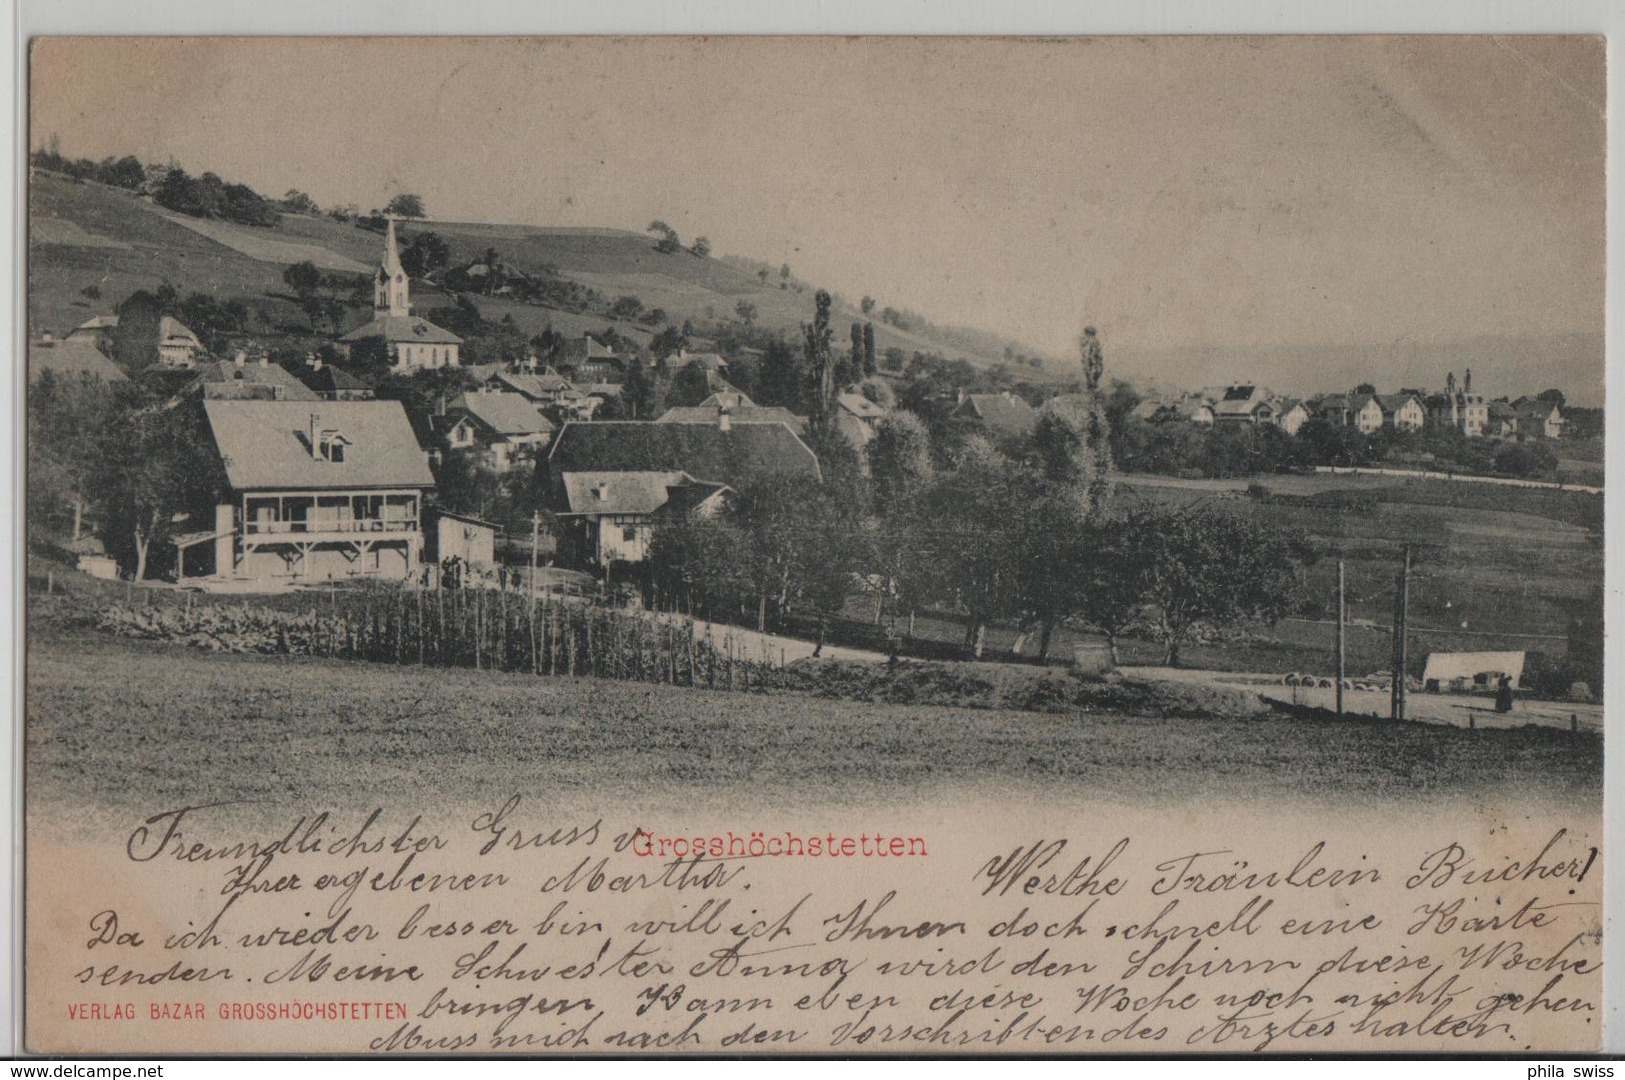 Grosshöchstetten
Werthe Fräulein Bucher!
Da ich wieder besser bin, will ich Ihnen doch schnell eine Karte
senden. Meine Schwester Anna wird den Schirm diese Woche
bringen. Kann eben diese Woche noch nicht gehen.
Muss mich nach den Vorschriften des Arztes halten.
Freundlichster Gruss v.
Ihrer ergebenen Martha.
VERLAG BAZAR GROSSHÖCHSTETTEN
delcampe.net
phila swiss